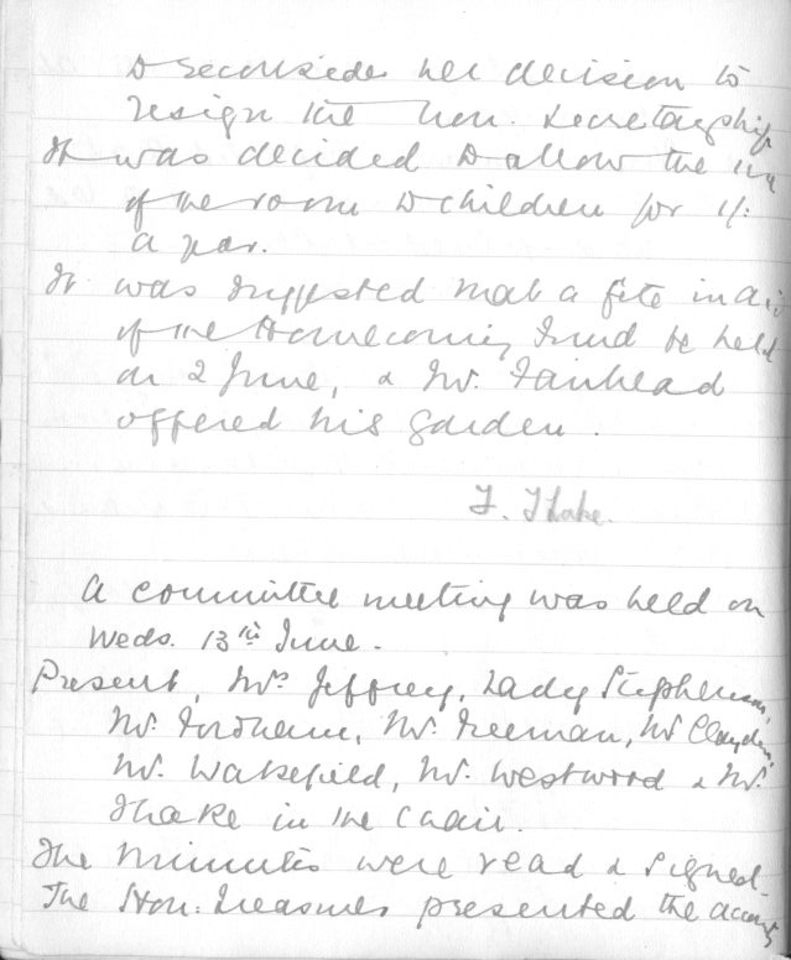 to reconsider her decision to
resign the hon. secretaryship
It was decided to allow the use
of the room to children for 1/-
a year.
It was suggested that a fete in aid
of the Homecoming Fund be held
on 2 June, & Mr. Fairhead
offered his garden.
F. Thake.
A committee meeting was held on
Weds. 13th June.
Present, Mrs Jeffrey, Lady Stephenson,
Mr. Fordham, Mr. Freeman, Mr Clayden,
Mr. Wakefield, Mr. Westwood & Mr.
Thake in the Chair.
The Minutes were read & signed.
The Hon: Treasurer presented the accounts